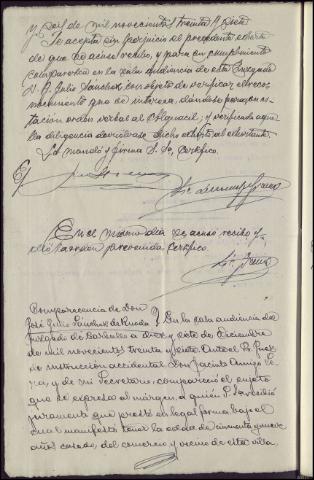 y seis de mil novecientos treinta y siete
Se acepta sin perjuicio el precedente exhorto
de que se acuse recibo, y para su cumplimiento
comparezca en la sala Audiencia de este Juzgado
D. José Julio Sánchez con objeto de verificar el reco-
nocimiento que se interesa, dándose para su ci-
tación orden verbal al Alguacil; y verificado que sea
la diligencia devuélvase dicho exhorto al exhortante.
Lo mandó y firma S. Sª, Certifico.
En el mismo día se acusó recibo y
dió la orden prevenida certifico.
Comparecencia de Don
José Julio Sánchez de Rueda
En la sala audiencia del
Juzgado de a diez y siete de Diciembre
de mil novecientos treinta y siete. Ante el Sr. Juez
de instrucción accidental Don Jacinto
y de mi Secretario compareció el sujeto
que se expresa al márgen, a quien S.S. recibió
juramento que prestó en legal forma bajo el
cual manifestó tener la edad de cincuenta y nueve
años casado, del comercio y vecino de esta villa.